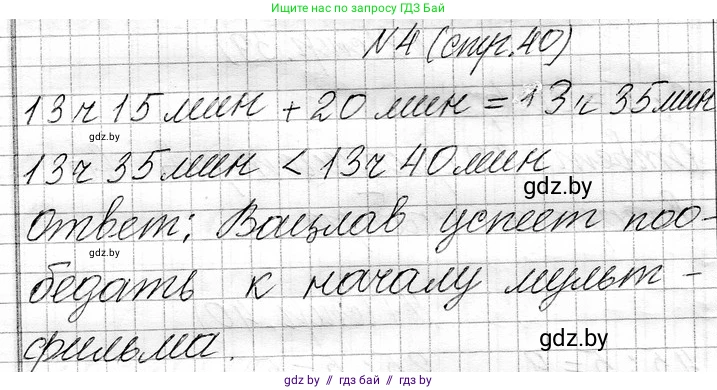 Ищите нас по запросу ГДЗ Бай
N4 (стр. 40)
13ч 15мин + 20 мин = 13ч 35мин
gdz.by
13ч 35мин < 13ч 40мин
gdz.by
Ответ: Вацлав успеет поо-
gdz.by
бедать к началу мульт-
фильма.
gdz.by
gdz.by // гдз бай // gdz.by